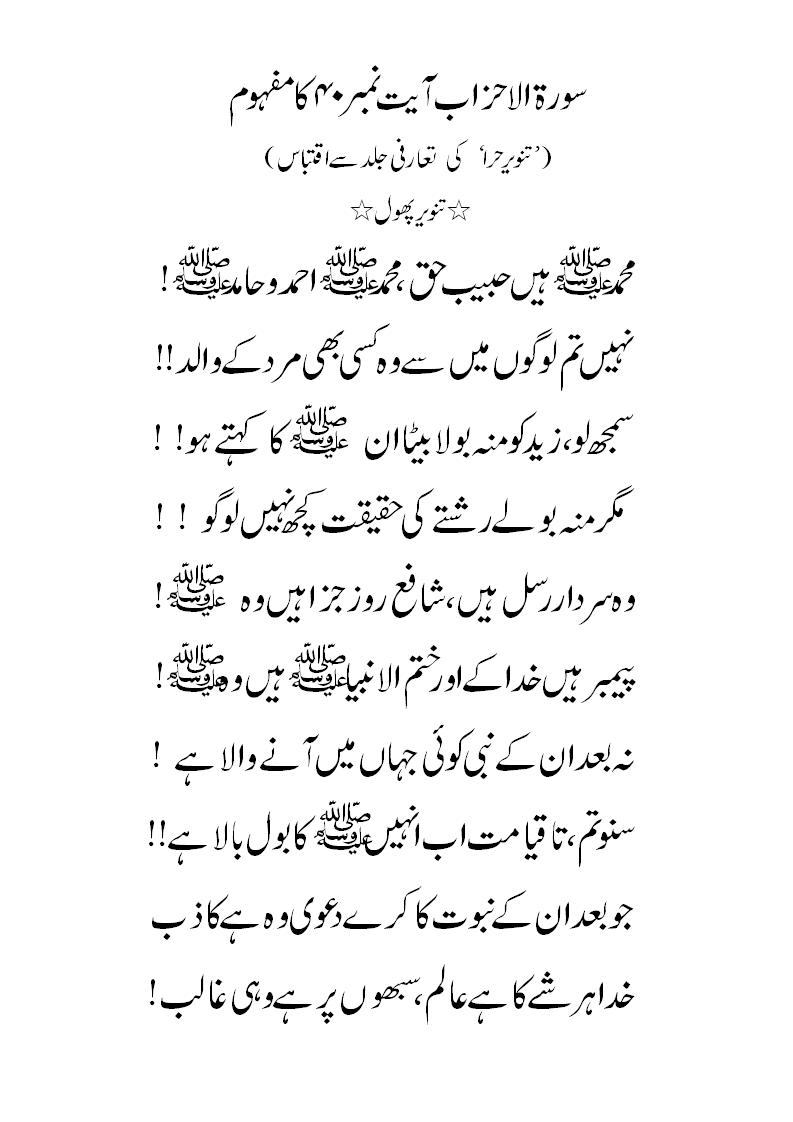 سورۃ الاحزاب آیت نمبر ۴۰ کا مفہوم
(’تنویرِ حرا‘ کی تعارفی جلد سے اقتباس)
☆ تنویر پھول ☆
محمدﷺ ہیں حبیبِ حق ، محمدﷺ احمد و حامدﷺ !
نہیں تم لوگوں میں سے وہ کسی بھی مرد کے والد !!
سمجھ لو، زید کو منہ بولا بیٹا ان ﷺ کا کہتے ہو! !
مگر منہ بولے رشتے کی حقیقت کچھ نہیں لوگو ! !
وہ سردارِ رسل ہیں، شافعِ روزِ جزا ہیں وہ ﷺ !
پیمبر ہیں خدا کے اور ختم الانبیاﷺ ہیں وہﷺ !
نہ بعد ان کے نبی کوئی جہاں میں آنے والا ہے !
سنو تم، تا قیامت اب انہیںﷺ کا بول بالا ہے !!
جو بعد ان کے نبوت کا کرے دعویٰ وہ ہے کاذب
خدا ہر شے کا ہے عالم، سبھوں پر ہے وہی غالب !